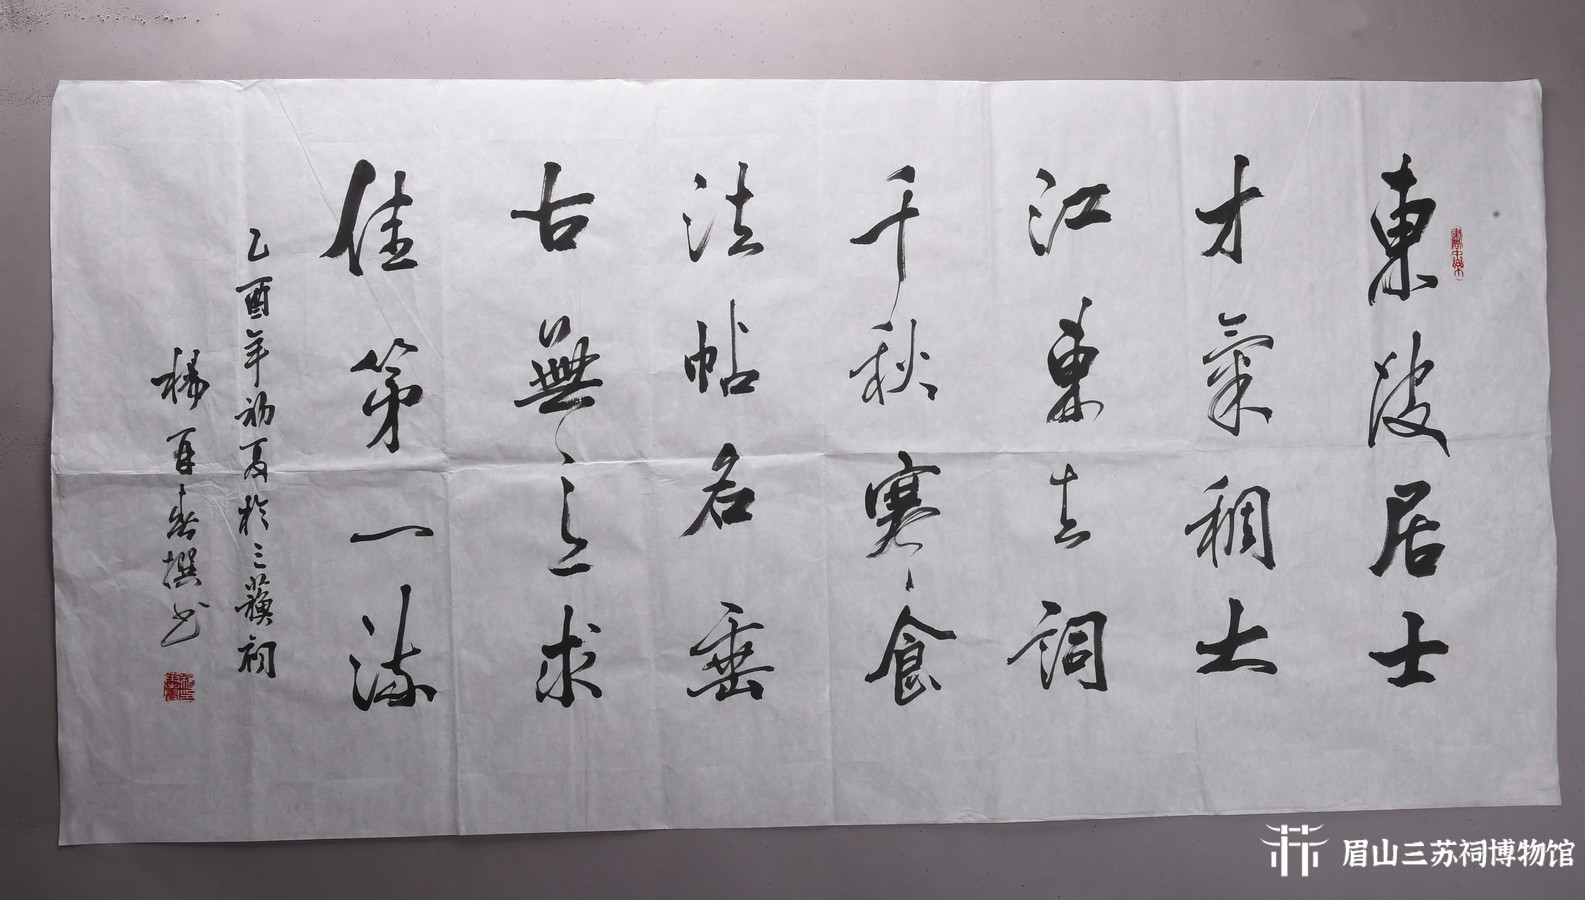 東坡居士
才氣稠大
江東去詞
千秋寒食
法帖名垂
古無意求
佳第一流
乙酉年初夏於三蘇祠
楊再春撰书
眉山三苏祠博物馆